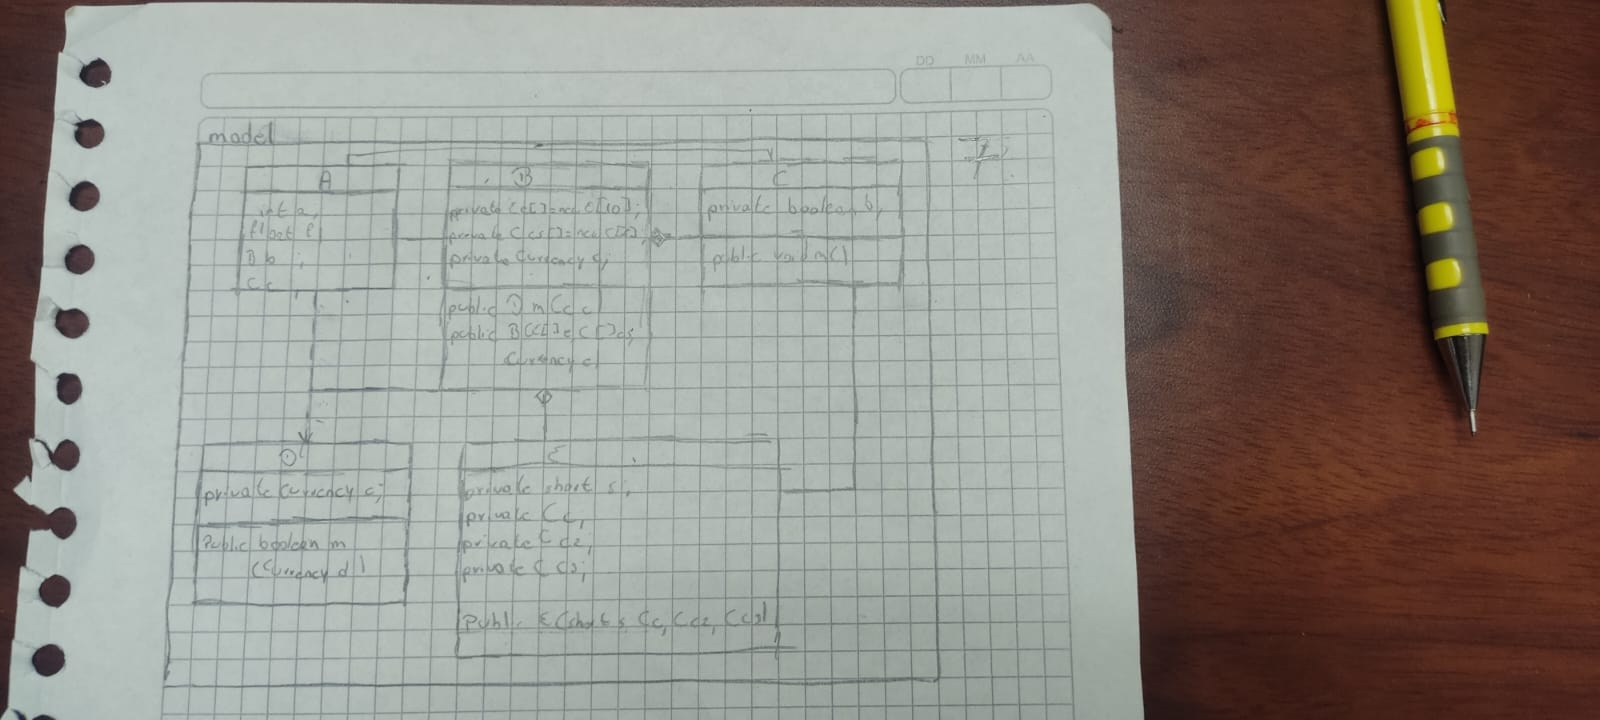 DD MM AA
model
A
int a;
float f;
B b;
C c;
B
private C c[]=new C[10];
private C cs[]=new C[];
private Currency c;
public D m C c
public B(C[] c C[] cs,
Currency c
C
private boolean b;
public void m()
D
private Currency c;
Public boolean m
(Currency d)
E
private short s;
private C c,
private C c2;
private C c3;
Public E(short s, C c, C c2, C c3)